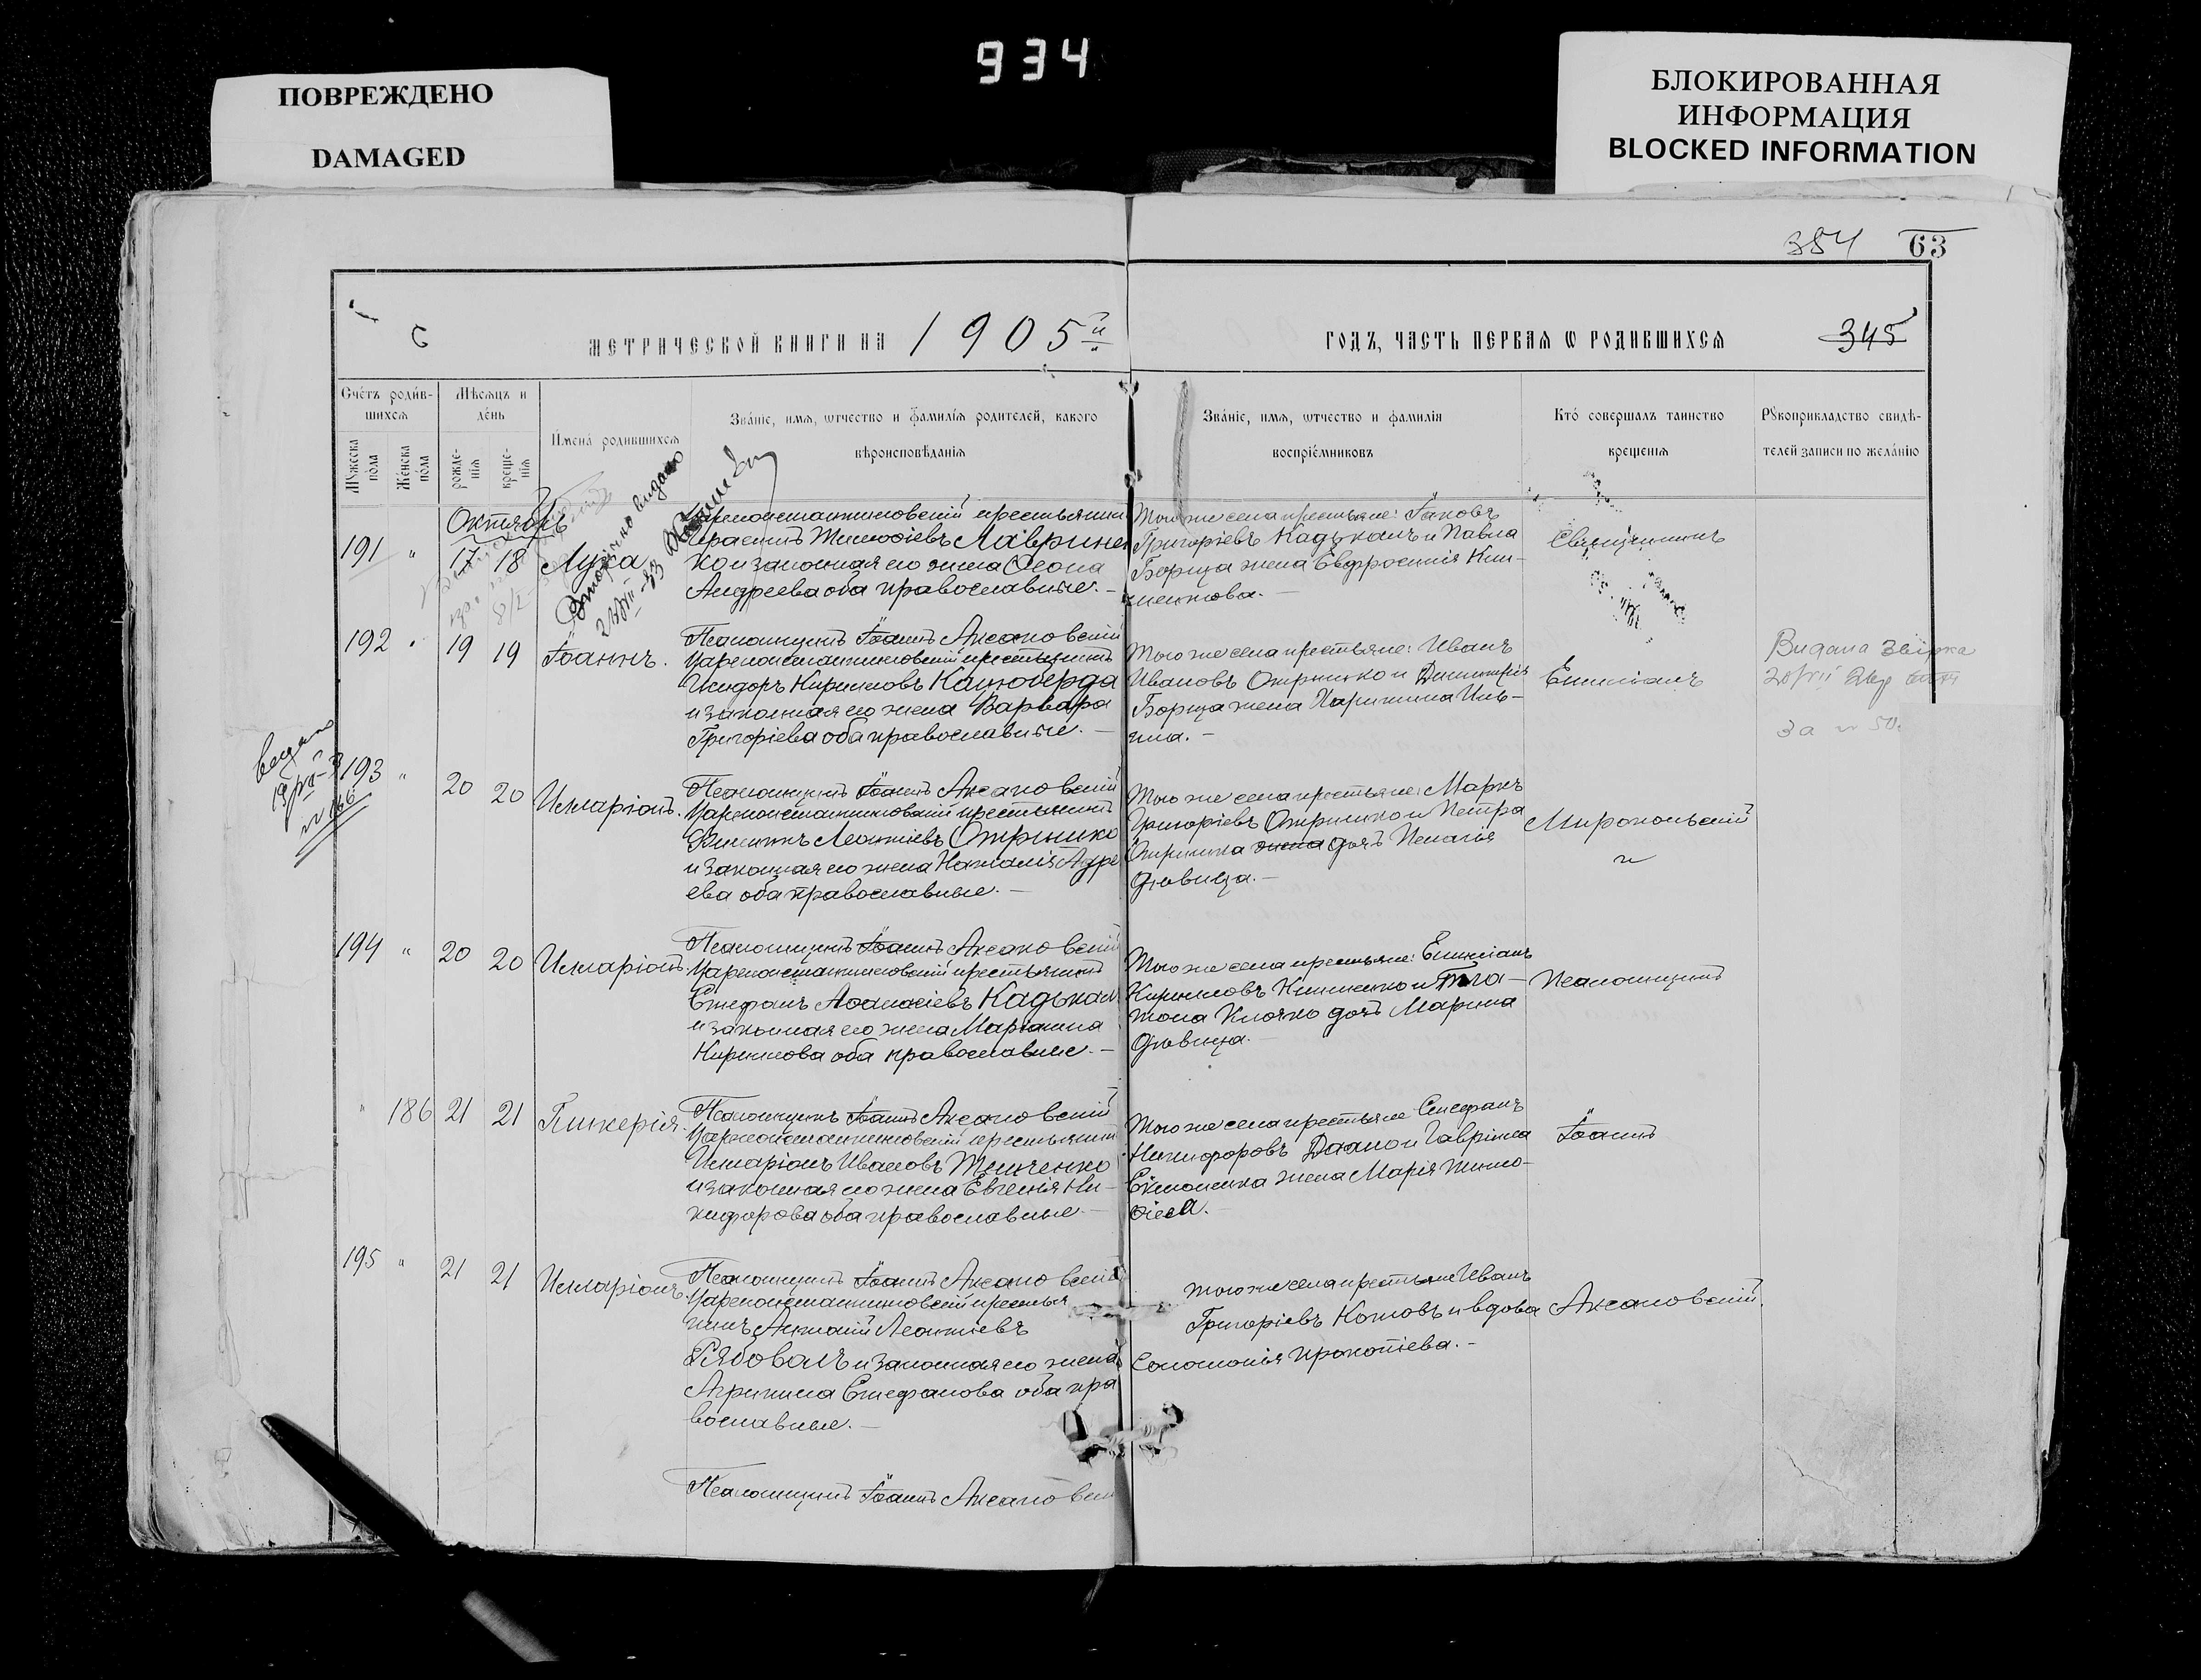 934
ПОВРЕЖДЕНО
DAMAGED
БЛОКИРОВАННАЯ
ИНФОРМАЦИЯ
BLOCKED INFORMATION
354 63
МЕТРИЧЕСКОЙ КНИГИ НА 1905й
ГОДЪ, ЧАСТЬ ПЕРВАЯ Ѡ РОДИВШИХСЯ 345
Счетъ родив-
шихся
Мужеска
пола
Женска
пола
Мѣсяцъ и
день
рожде-
нія
креще-
нія
Имена родившихся
Званіе, имя, ѡтчество и фамилія родителей, какого
вѣроисповѣданія
Званіе, имя, ѡтчество и фамилія
воспріемниковъ
Кто совершалъ таинство
крещенія
Рукоприкладство свидѣ-
телей записи по желанію
Октябрь
191 " 17 18 Лука
Вторічно видано
Цареконстантиновскій крестьянин
Тимоѳіевъ Лаврине
ко и законная его жена
Андреева оба православные. –
Того же села крестьяне: Іаковъ
Григоріевъ Кадькалъ и Павла
Борща жена Евфросинія Кли-
ментова. –
Священникъ
192 " 19 19 Іоаннъ.
Псаломщикъ Іоаннъ Аксановскій
Цареконстантиновскій крестьянинъ
Исидоръ Кирилловъ Коцюберда
и законная его жена Варвара
Григоріева оба православные. –
Того же села крестьяне: Иванъ
Ивановъ Отришко и Димитрія
Борща жена Харитина Иль-
ина. –
Емиліанъ
Видана
за № 50.
видано
№ 166
193 " 20 20 Илларіонъ.
Псаломщикъ Іоаннъ Аксановскій
Цареконстантиновскій крестьянинъ
Филиппъ Леонтіевъ Отришко
и законная его жена Наталія Адре
ева оба православные. –
Того же села крестьяне: Маркъ
Григоріевъ Отришко и Петра
Отришка жена дочь Пелагія
дѣвица. –
Миропольскій
и
194 " 20 20 Илларіонъ.
Псаломщикъ Іоаннъ Аксановскій
Цареконстантиновскій крестьянинъ
Стефанъ Аѳанасіевъ Кадькал
и законная его жена Маріанна
Кириллова оба православные. –
Того же села крестьяне: Емиліанъ
Кирилловъ Клименко и Пла-
тона Клочко дочь Марина
дѣвица. –
Псаломщикъ
" 186 21 21 Гликерія.
Псаломщикъ Іоаннъ Аксановскій
Цареконстантиновскій крестьянин
Илларіонъ Ивановъ Тимченко
и законная его жена Евгенія Ни-
кифорова оба православные. –
Того же села крестьяне Стефанъ
Никифоровъ Дадако и Гавріила
жена Марія Тимо-
ѳіева. –
Іоаннъ
195 " 21 21 Илларіонъ.
Псаломщикъ Іоаннъ Аксановскій
Цареконстантиновскій крестья
нинъ Антоній Леонтіевъ
Рябовалъ и законная его жена
Агрипина Стефанова оба пра
вославные. –
Того же села крестьяне Иванъ
Григоріевъ Котовъ и вдова
Соломонія Прокопіева. –
Аксановскій.
Псаломщикъ Іоаннъ Аксановскі